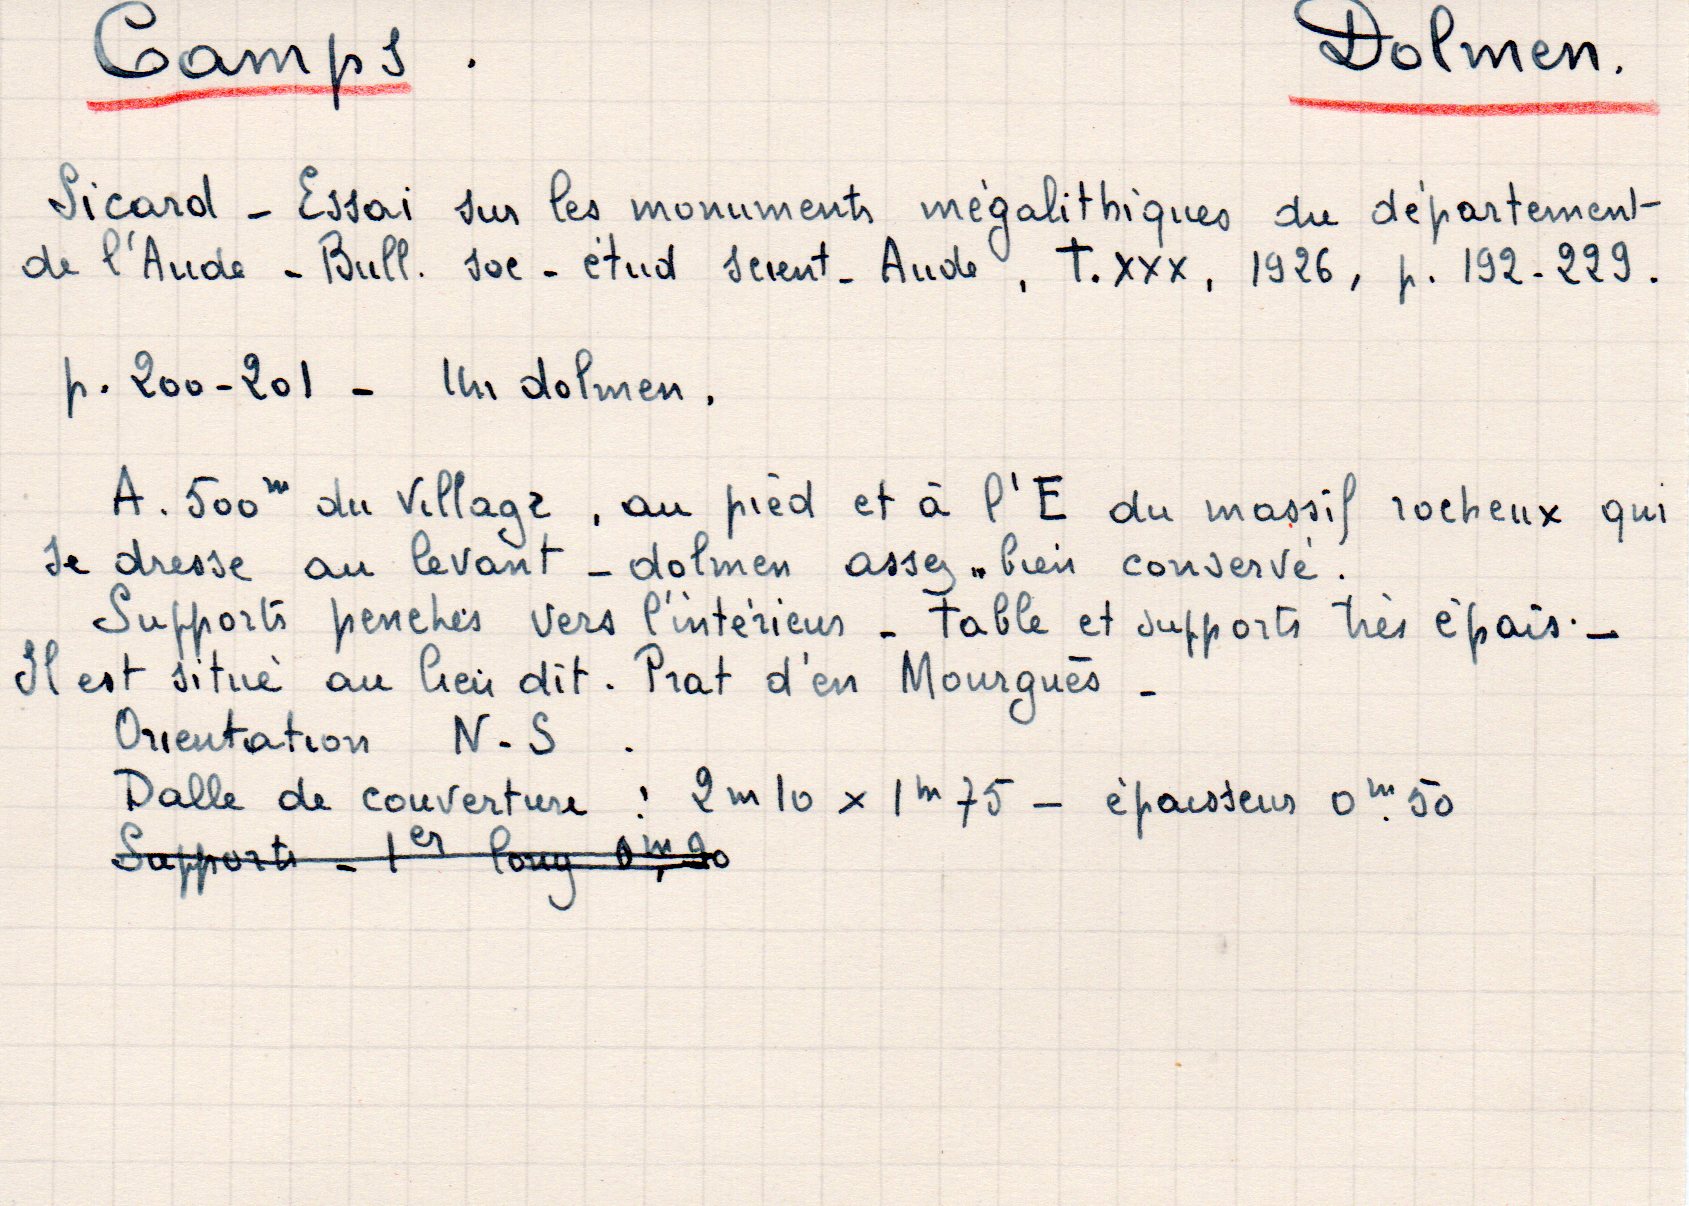 Camps. Dolmen.
Sicard - Essai sur les monuments mégalithiques du département
de l'Aude - Bull. soc - étud scient - Aude, T. XXX, 1926, p. 192-229.
p. 200-201 - Un dolmen.
A. 500m du village, au pied et à l'E du massif rocheux qui
se dresse au levant - dolmen assez bien conservé.
Supports penchés vers l'intérieur - Table et supports très épais. -
Il est situé au lieu dit. Prat d'en Mourguès -
Orientation N-S.
Dalle de couverture : 2m10 x 1m75 - épaisseur 0m.50
Supports - 1er long 0m,90